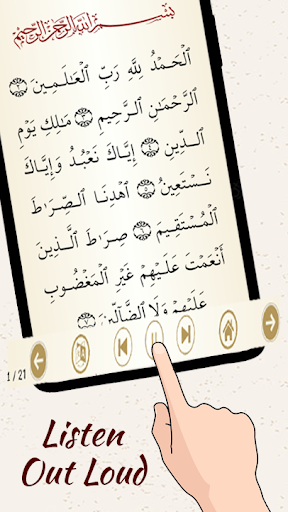 بِسْمِ ٱللَّهِ ٱلرَّحْمَٰنِ ٱلرَّحِيمِ
ٱلْحَمْدُ لِلَّهِ رَبِّ ٱلْعَٰلَمِينَ ٢
ٱلرَّحْمَٰنِ ٱلرَّحِيمِ ٣ مَٰلِكِ يَوْمِ
ٱلدِّينِ ٤ إِيَّاكَ نَعْبُدُ وَإِيَّاكَ
نَسْتَعِينُ ٥ ٱهْدِنَا ٱلصِّرَٰطَ
ٱلْمُسْتَقِيمَ ٦ صِرَٰطَ ٱلَّذِينَ
أَنْعَمْتَ عَلَيْهِمْ غَيْرِ ٱلْمَغْضُوبِ
عَلَيْهِمْ وَلَا ٱلضَّآلِّينَ ٧
1 / 21
Listen
Out Loud